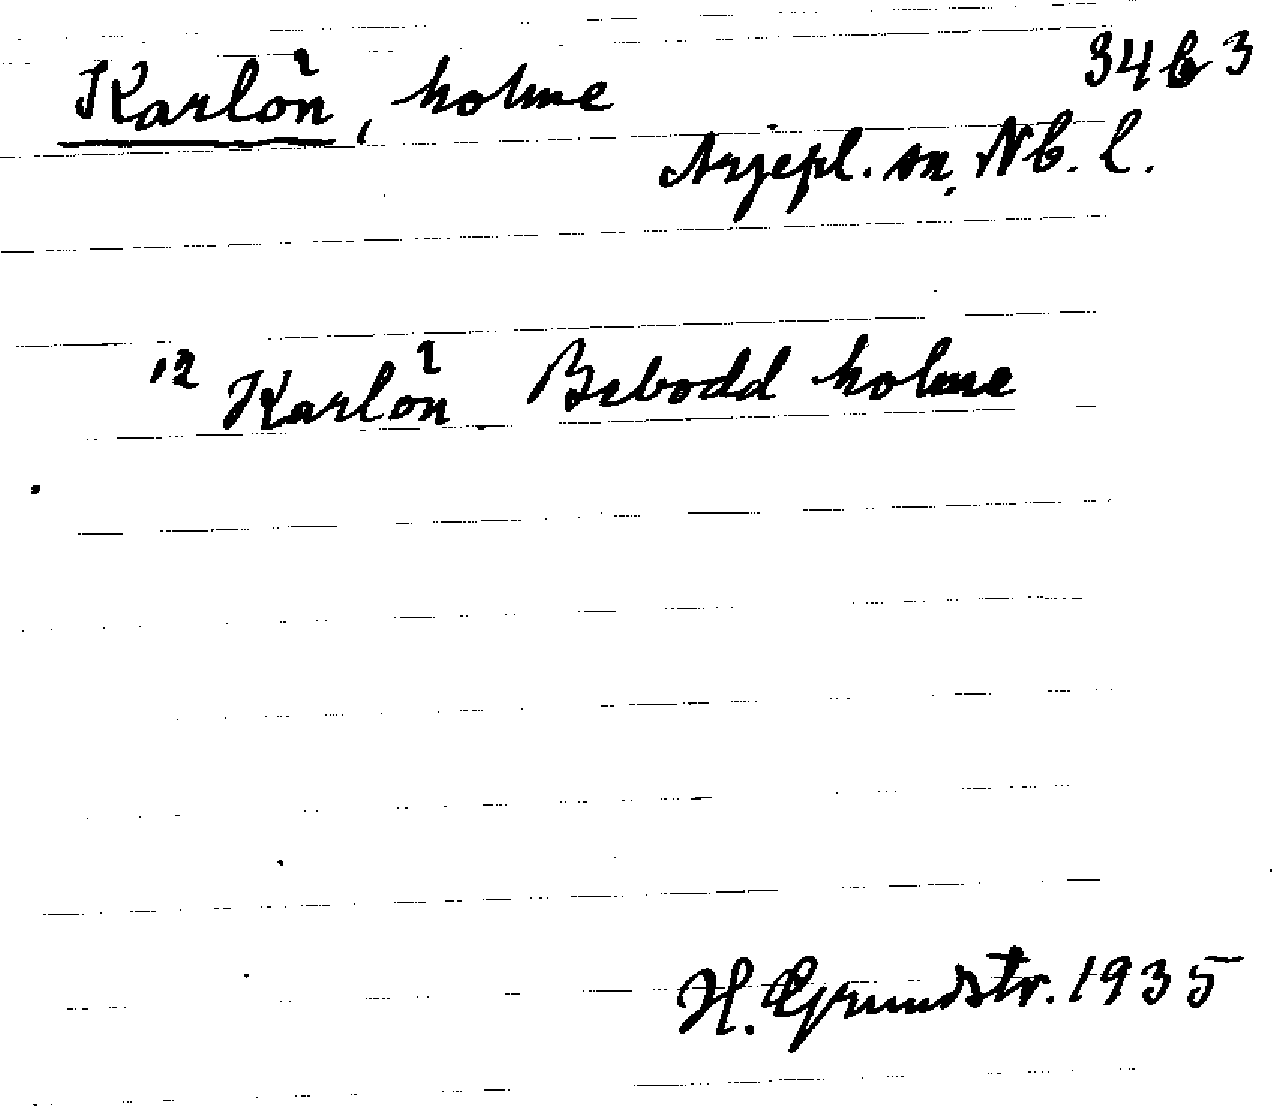 Karlön, holme
3463
Arjepl. sn, Nb. l.
12 Karlön Bebodd holme
H. Grundstr. 1935